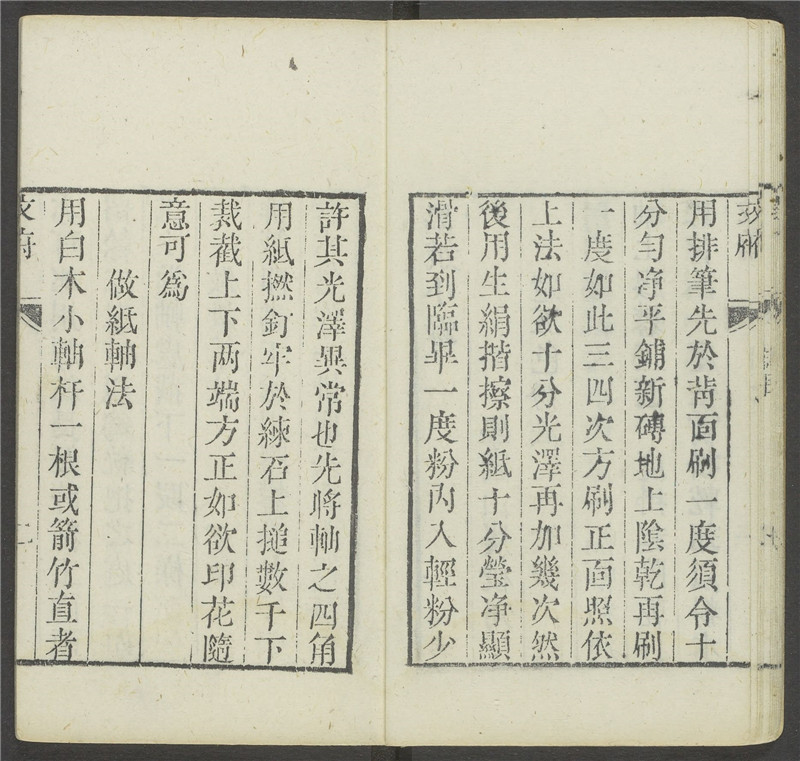 用排筆先於背面刷一度須令十
分勻净平鋪新磚地上陰乾再刷
一度如此三四次方刷正面照依
上法如欲十分光澤再加幾次然
後用生絹揩擦則紙十分瑩净顯
滑若到臨畢一度粉內入輕粉少
許其光澤異常也先將軸之四角
用紙撚釘牢於練石上搥數千下
裁截上下两端方正如欲印花隨
意可爲
做紙軸法
用白木小軸杆一根或箭竹直者